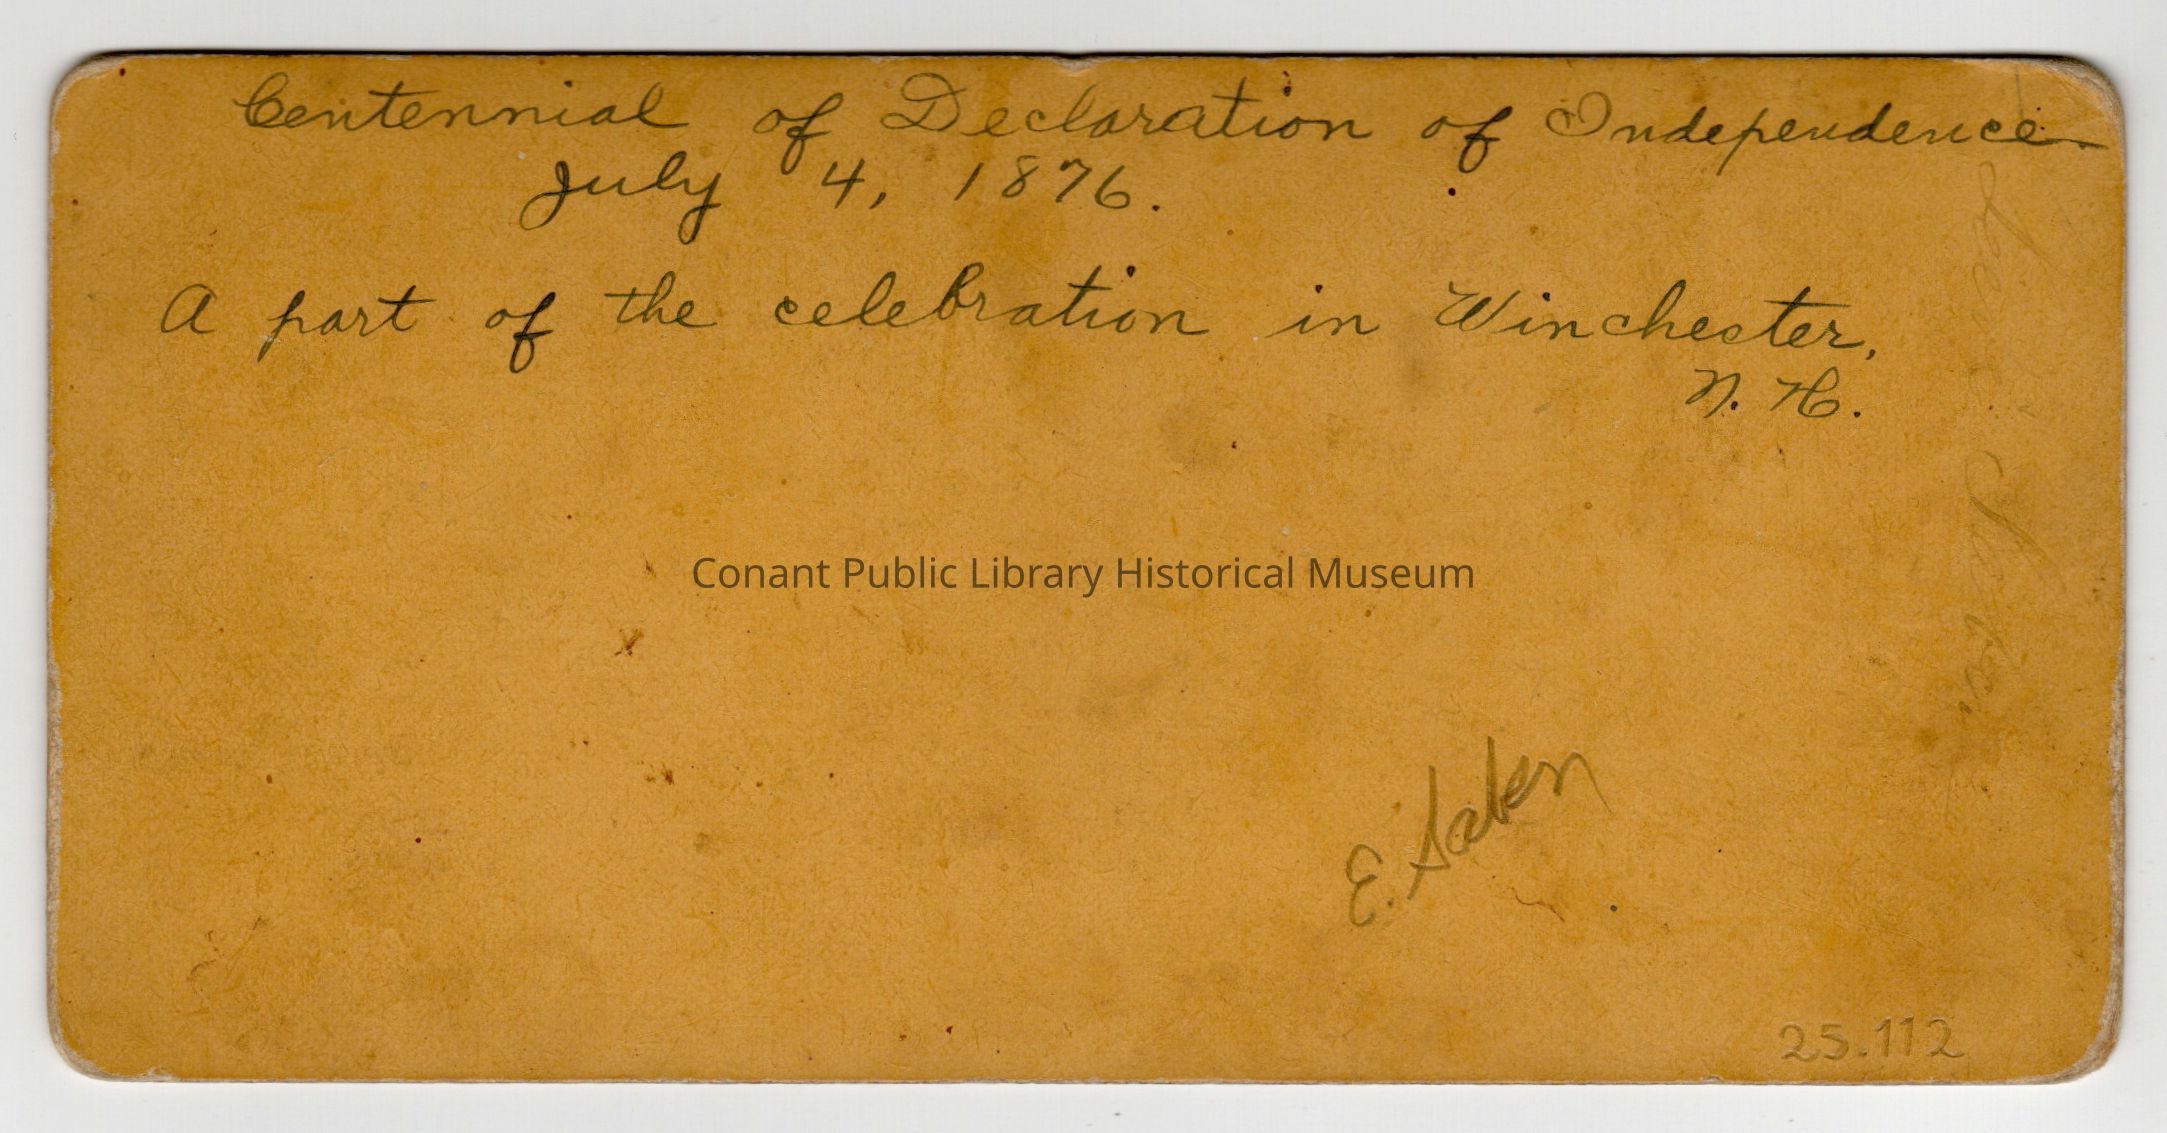 Centennial of Declaration of Independence
July 4, 1876.
A part of the celebration in Winchester,
N. H.
Conant Public Library Historical Museum
E.
25.112